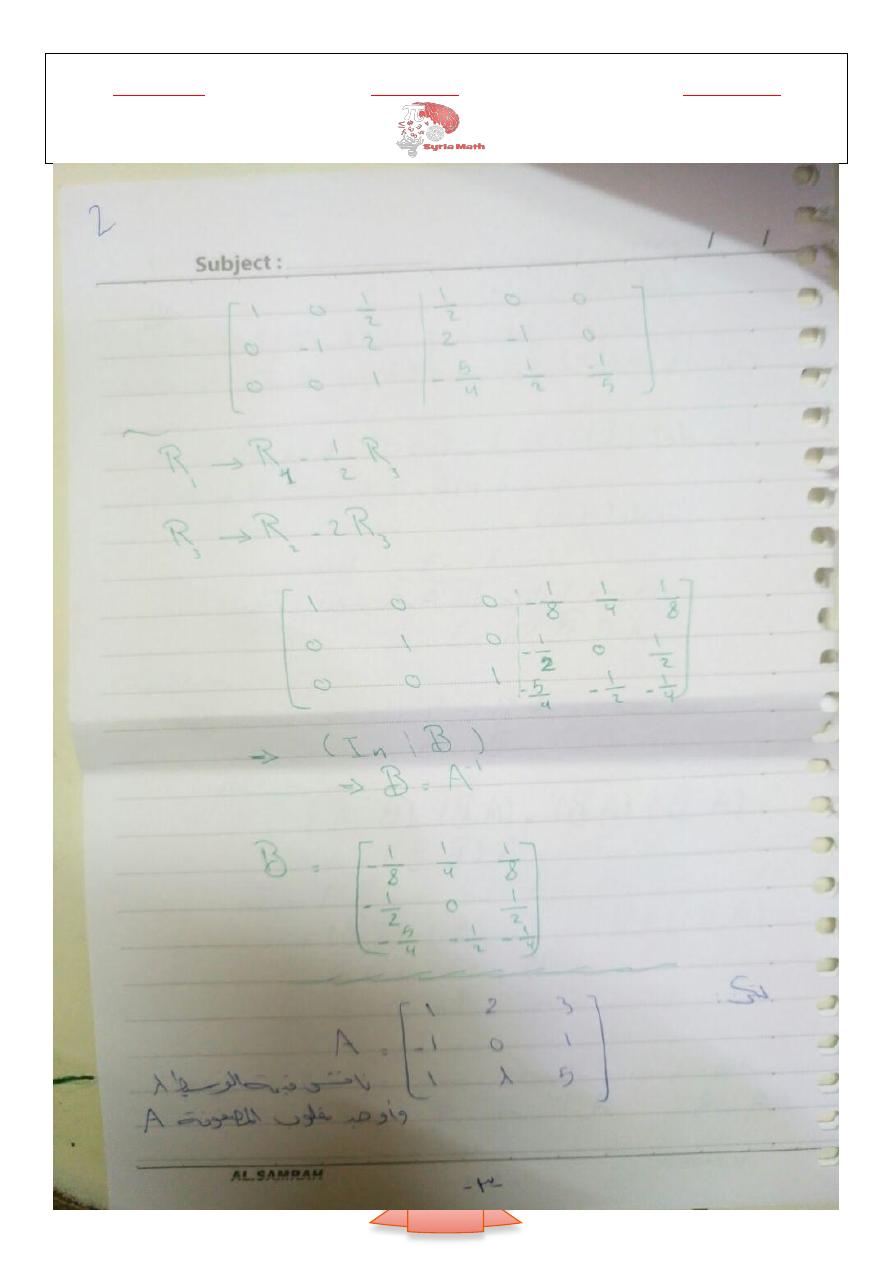 Syria Math
2
/ /
Subject :
[ 1 0 1/2 | 1/2 0 0 ]
[ 0 -1 2 | 2 -1 0 ]
[ 0 0 1 | -5/4 1/2 -1/5 ]
R₁ → R₁ - 1/2 R₃
R₃ → R₂ - 2R₃
[ 1 0 0 | -1/8 1/4 1/8 ]
[ 0 1 0 | -1/2 0 1/2 ]
[ 0 0 1 | -5/4 -1/2 -1/4 ]
⇒ (In | B)
⇒ B = A⁻¹
B = [ -1/8 1/4 1/8 ]
[ -1/2 0 1/2 ]
[ -5/4 -1/2 -1/4 ]
لتكن:
A = [ 1 2 3 ]
[ -1 0 1 ]
[ 1 λ 5 ]
ناقش قيمة الوسيط λ
وأوجد مقلوب المصفوفة A
AL.SAMRAH
-٣-